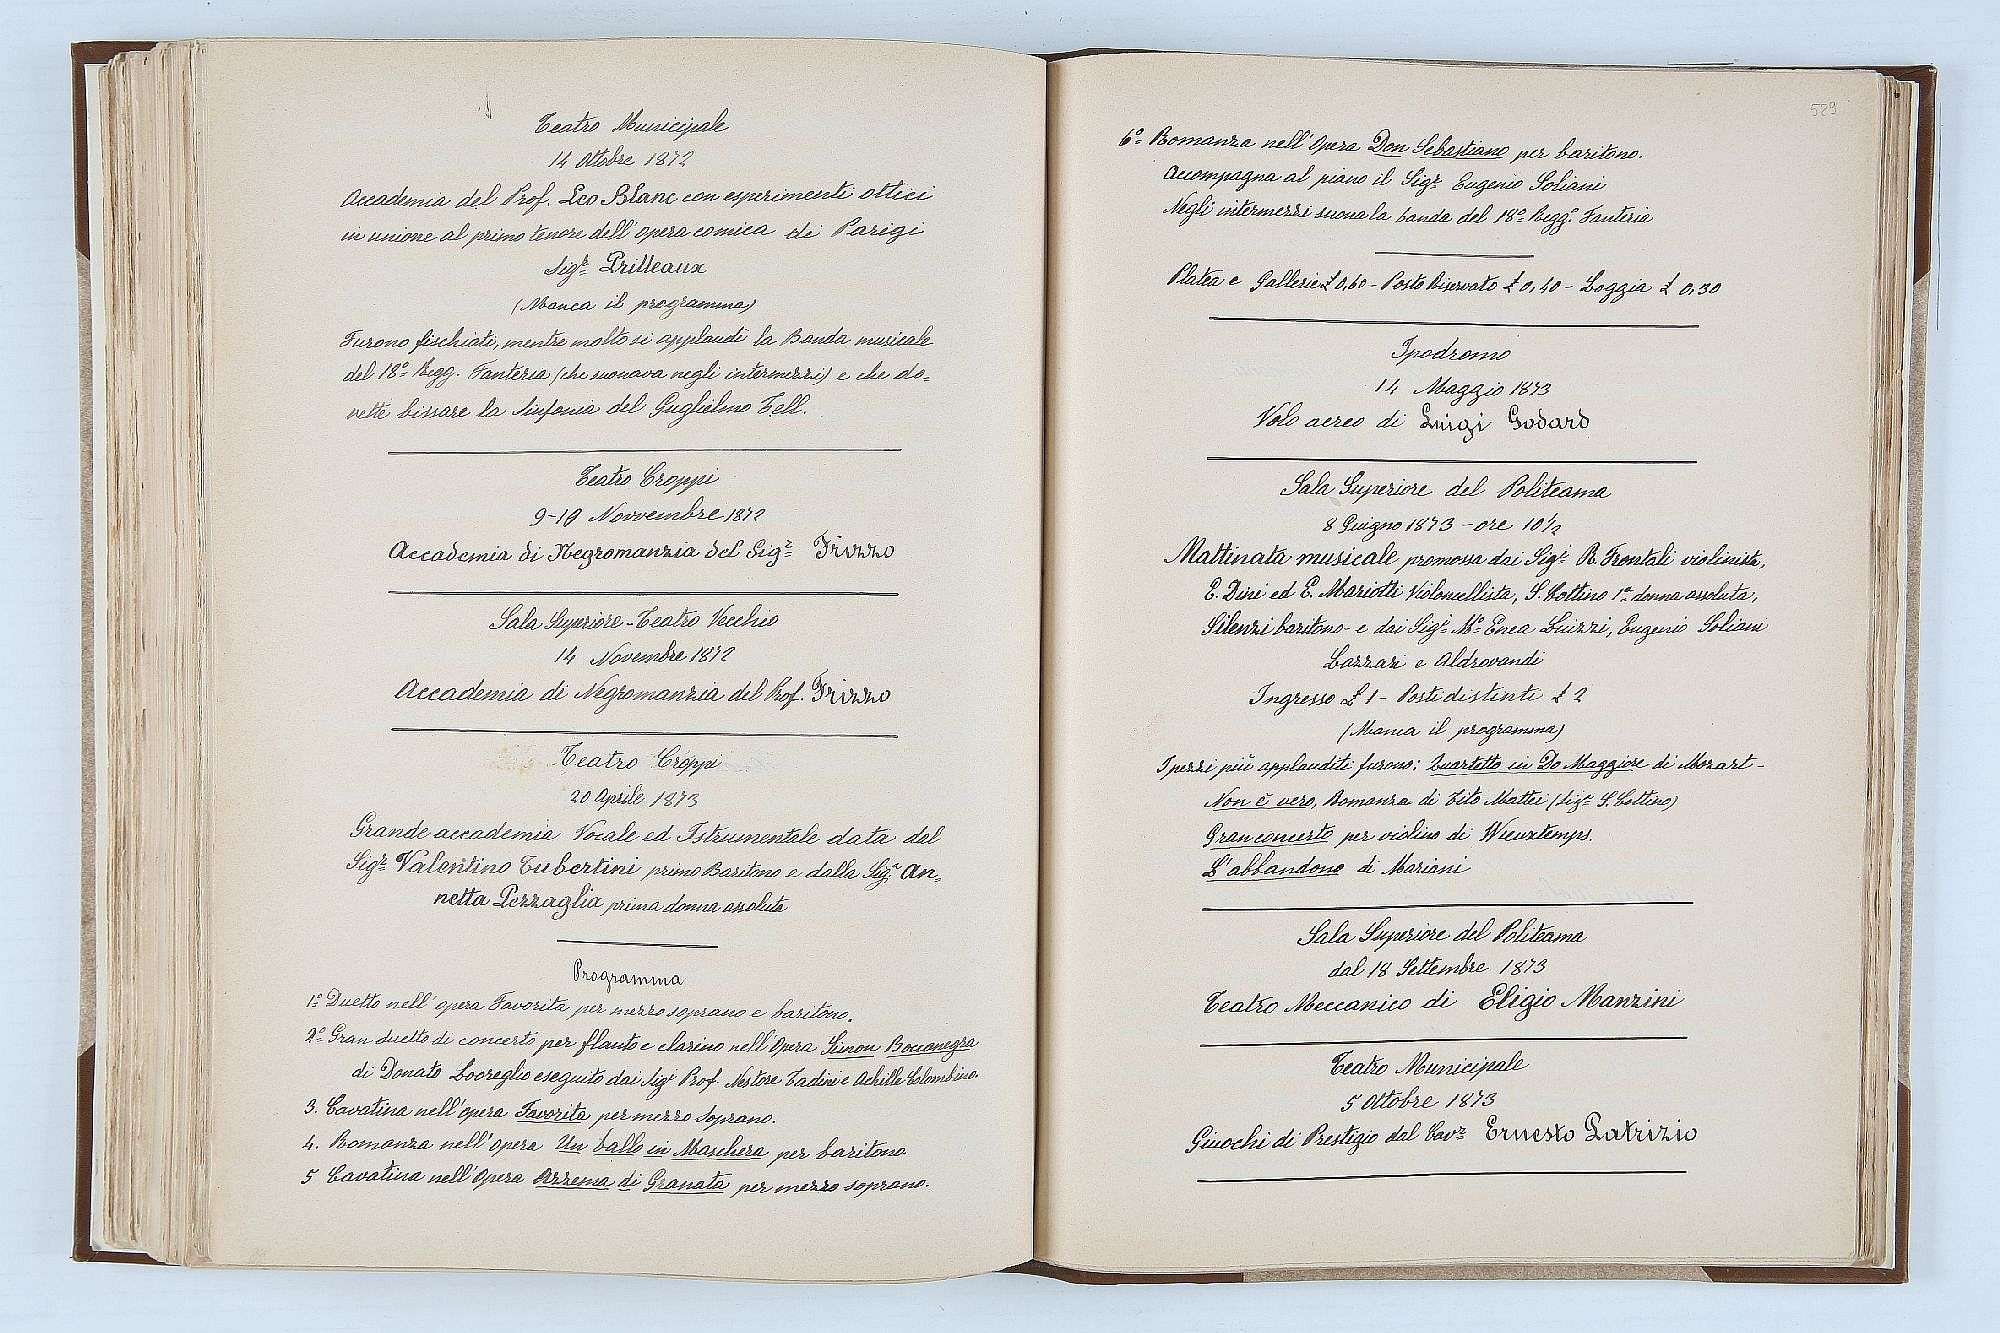 Teatro Municipale
14 Ottobre 1872
Accademia del Prof. Leo Blanc con esperimenti ottici
in unione al primo tenore dell'opera comica di Parigi
Sigr. Prilleaux
(Manca il programma)
Furono fischiati, mentre molto si applaudì la Banda musicale
del 18º Regg. Fanteria (che suonava negli intermezzi) e che do=
vette bissare la Sinfonia del Guglielmo Tell.
Teatro Croppi
9-10 Novembre 1872
Accademia di Negromanzia del Sigr. Frizzo
Sala Superiore - Teatro Vecchio
14 Novembre 1872
Accademia di Negromanzia del Prof. Frizzo
Teatro Croppi
20 Aprile 1873
Grande accademia Vocale ed Istrumentale data dal
Sigr. Valentino Tubertini primo Baritono e dalla Siga. An=
netta Pezzaglia prima donna assoluta
Programma
1º Duetto nell'opera Favorita per mezzo soprano e baritono.
2º Gran duetto di concerto per flauto e clarino nell'Opera Simon Boccanegra
di Donato Lovreglio eseguito dai Sigi Prof. Nestore Tadini e Achille Colombino.
3. Cavatina nell'opera Favorita per mezzo soprano.
4. Romanza nell'opera Un ballo in Maschera per baritono
5 Cavatina nell'Opera Azzema di Granata per mezzo soprano.
529
6º Romanza nell'Opera Don Sebastiano per baritono.
Accompagna al piano il Sigr. Eugenio Soliani
Negli intermezzi suona la banda del 18º Regg. Fanteria
Platea e Gallerie £ 0,60 - Posto Riservato £ 0,40 - Loggia £ 0,30
Ipodromo
14 Maggio 1873
Volo aereo di Luigi Godard
Sala Superiore del Politeama
8 Giugno 1873 - ore 10½
Mattinata musicale promossa dai Sigi. R. Frontali violinista,
E. Dini ed E. Mariotti Violoncellista, S. Cottino 1a donna assoluta,
Silenzi baritono e dai Sigi. Mo. Enea Guizzi, Eugenio Soliani
Lazzari e Aldrovandi
Ingresso £ 1 - Posti distinti £ 2
(Manca il programma)
I pezzi più applauditi furono: Quartetto in Do Maggiore di Mozart -
Non è vero, Romanza di Tito Mattei (Siga S. Cottino)
Gran concerto per violino di Wieuxtemps.
L'abbandono di Mariani
Sala Superiore del Politeama
dal 18 Settembre 1873
Teatro Meccanico di Eligio Manzini
Teatro Municipale
5 Ottobre 1873
Giuochi di Prestigio dal Cavr. Ernesto Patrizio